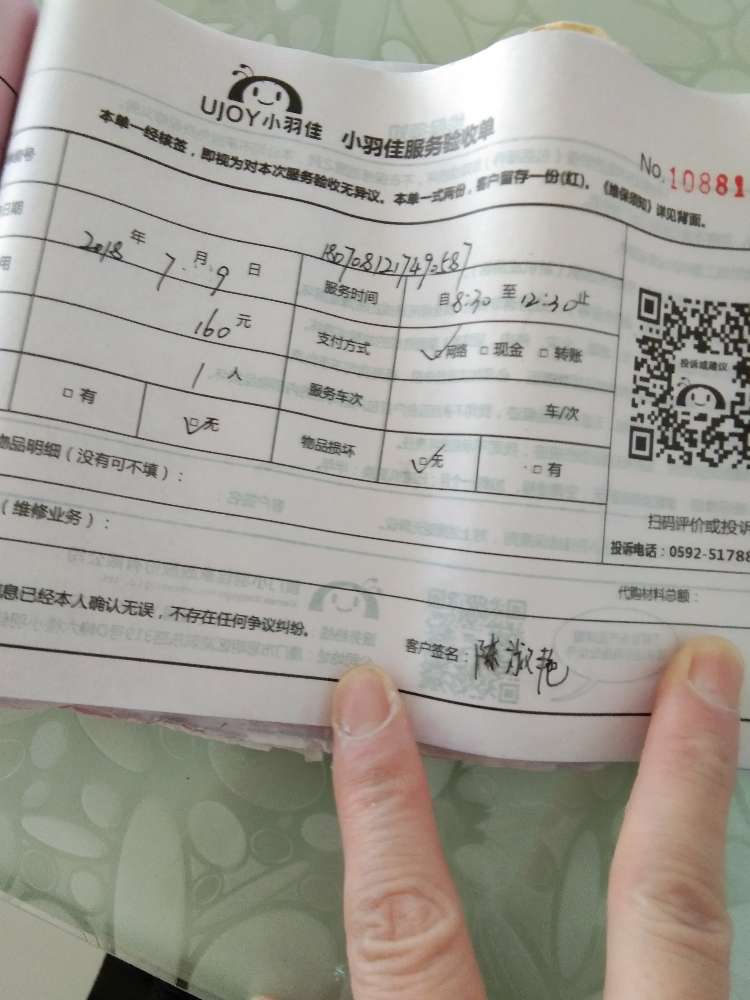 UJOY小羽佳 小羽佳服务验收单
No.10881
本单一经核签，即视为对本次服务验收无异议。本单一式两份，客户留存一份(红)。《维保须知》详见背面。
号
1807081217490587
日期 2018年7月9日 服务时间 自8:30至12:30止
用 160元 支付方式 网络 现金 转账
1人 服务车次 车/次
有 无 物品损坏 无 有
投诉或建议
物品明细（没有可不填）：
扫码评价或投诉
（维修业务）：
投诉电话：0592-51788
代购材料总额：
息已经本人确认无误，不存在任何争议纠纷。
客户签名：陈淑艳